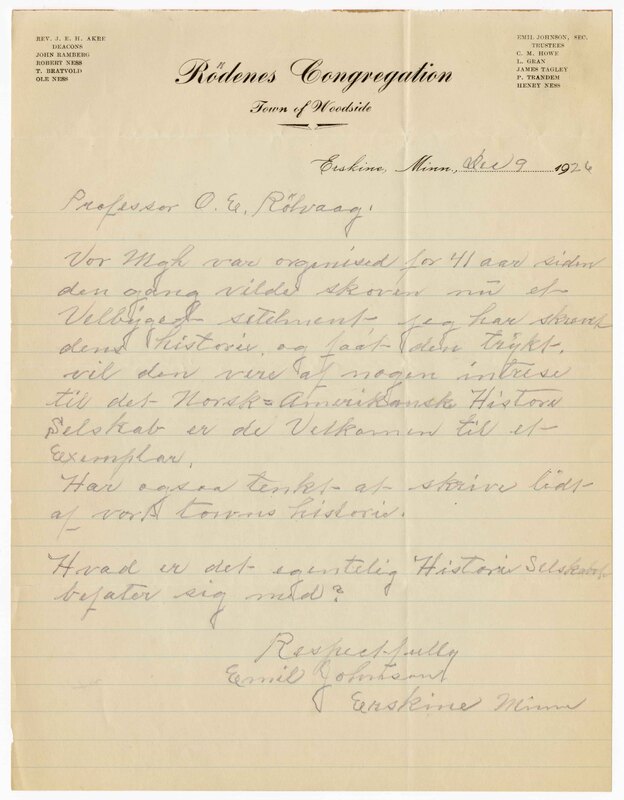 REV. J. E. H. AKRE
DEACONS
JOHN RAMBERG
ROBERT NESS
T. BRATVOLD
OLE NESS
EMIL JOHNSON, SEC.
TRUSTEES
C. M. HOWE
L. GRAN
JAMES TAGLEY
P. TRANDEM
HENRY NESS
Rödenes Congregation
Town of Woodside
Erskine, Minn., Dec 9 1926
Professor O. E. Rölvaag.
Vor Mgh var orginised for 41 aar siden
den gang vilde skoven nu et
Velbyged setelment jeg har skrevet
dens historie, og faat den trykt.
vil den vere af nogen intrese
til det Norsk=Amerikanske Historie
Selskab er de Velkomen til et
Exemplar.
Har ogsaa tenkt at skrive lidt
af vort towns historie.
Hvad er det egentelig Historie Selskabet
befater sig med?
Respectfully
Emil Johnson
Erskine Minn